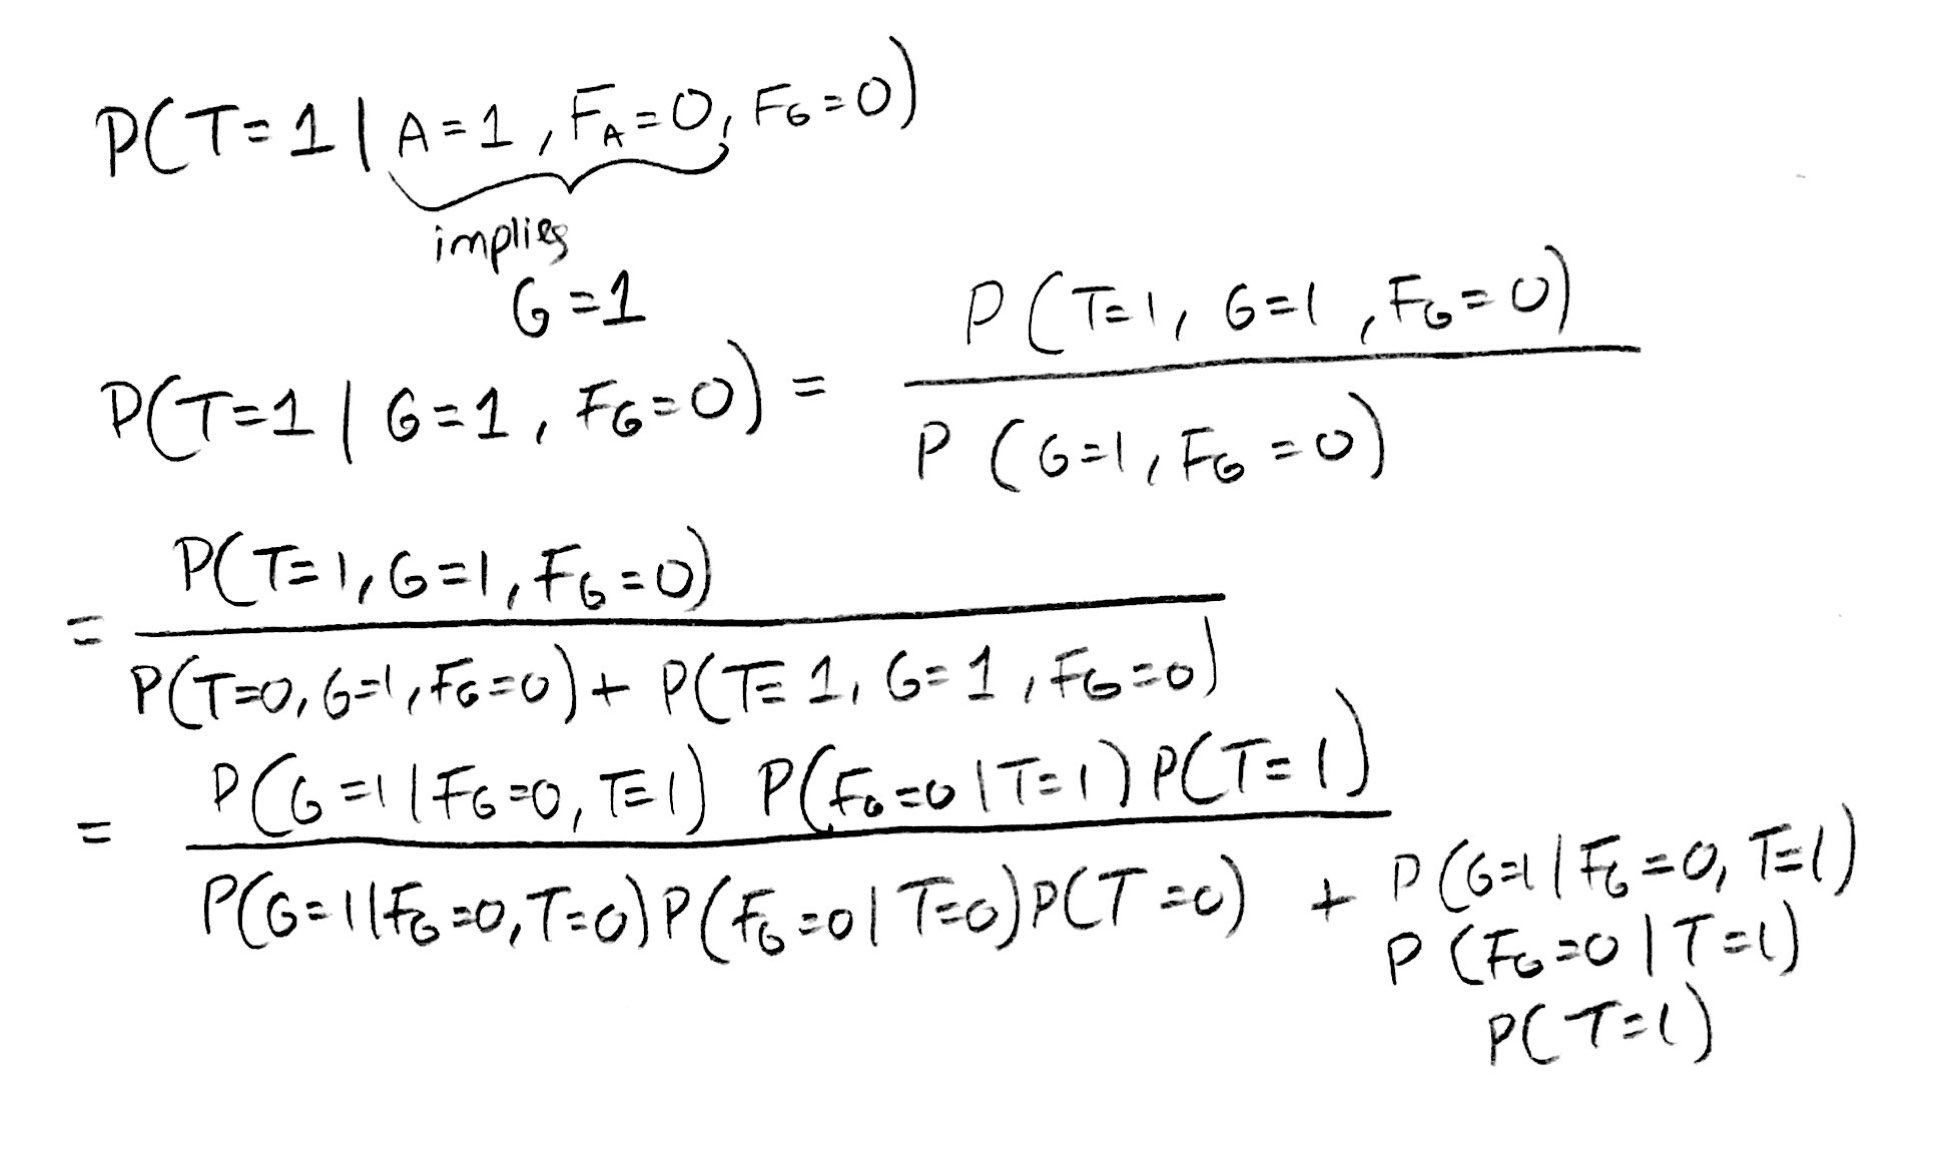 P(T=1 | A=1, F_A=0, F_G=0)
implies
G=1
P(T=1 | G=1, F_G=0) = P(T=1, G=1, F_G=0)
P(G=1, F_G=0)
P(T=1, G=1, F_G=0)
=
P(T=0, G=1, F_G=0) + P(T=1, G=1, F_G=0)
P(G=1 | F_G=0, T=1) P(F_G=0 | T=1) P(T=1)
=
P(G=1 | F_G=0, T=0) P(F_G=0 | T=0) P(T=0) + P(G=1 | F_G=0, T=1)
P(F_G=0 | T=1)
P(T=1)